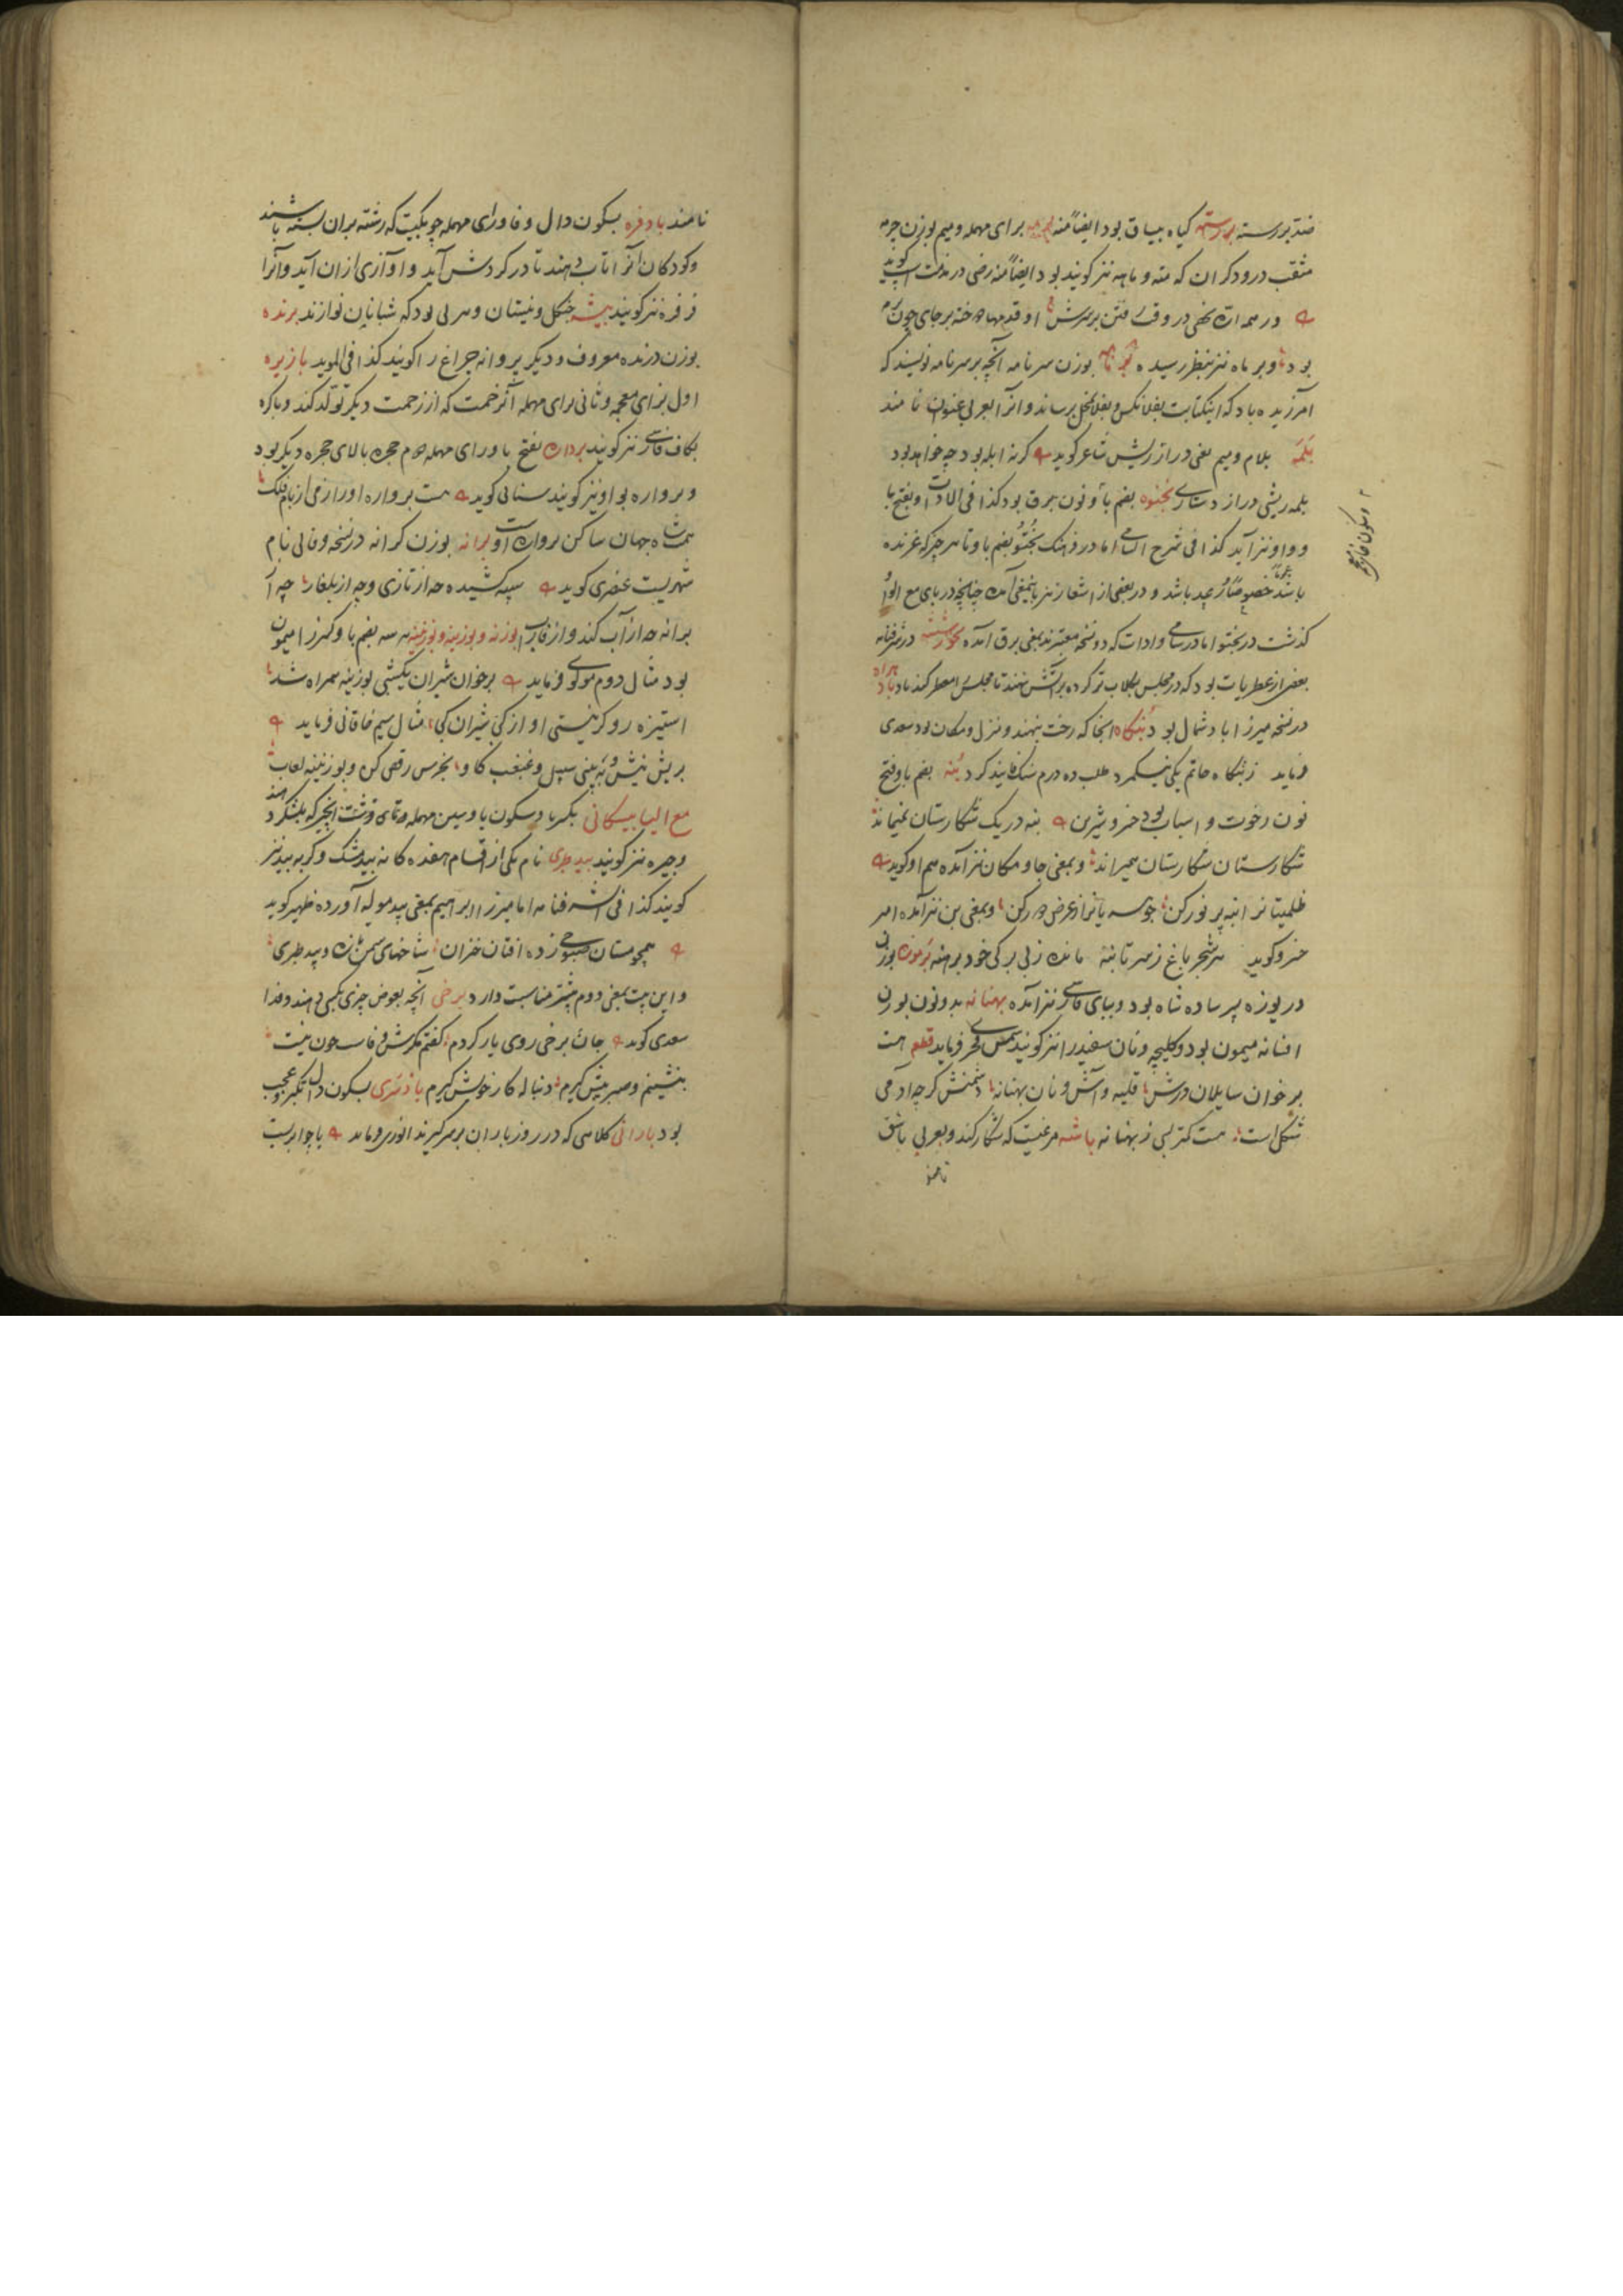 ضد بررسته بررسته گیاه بیساق بود ایضاً منه برای مهمله و میم بوزن چرمه
مثقب درودکران که مته و ماهه نیز کویند بود ایضاً منه رضی در مذمت اسپ کوید
در همه
بود و برماه نیز بنظر رسیده بوزن سرنامه آنچه بر سرنامه نویسند که
آمرزیده باد که اینکتابت بفلانکس و بفلانمحل برساند و انرا بعربی عنوان نامند
بلمه بلام و میم یعنی دراز ریش شاعر کوید کرنه ابله بود چه خواهد بود
بلمه ریشی دراز دستاری بخنوه بضم با و نون برق بود کذا فی الادات و بفتح با
و سکون خا
و واو نیز آید کذا فی شرح السامی اما در فرهنک بختو بضم با و تا هر چیز که غرنده
باشد عموماً خصوصاً رعد باشد و در بعضی از اشعار نیز باینمعنی آمده چنانچه در بای مع الواو
کذشت در بختو اما در سامی و ادات که دو نسخه معتبرند بمعنی برق آمده در شرفنامه
بعضی از عطریات بود که در مجلس بکلاب تر کرده بر آتش نهند تا مجلس را معطر کند باد
در نسخه میرزا باد شمال بود بنکاه انجا که رخت بنهند و منزل و مکان بود سعدی
فرماید ز بنکاه حاتم یکی نیکمرد طلب ده درم سنک فانید کرد بنه بضم با و فتح
نون رخوت و اسباب بود خسرو شیرین بنه در یک شکارستان نمیماند
شکارستان شکارستان همیراند و بمعنی جا و مکان نیز آمده هم او کوید
ظلمتیانرا بنه پر نور کن جوهریانرا ز عرض دور کن و بمعنی بن نیز آمده امیر
خسرو کوید هر شجر باغ ز سر تا بنه مانده ز بی برکی خود برهنه برموزه بوزن
دریوزه پسر ساده شاه بود و ببای فارسی نیز آمده بهنانه بدو نون بوزن
افسانه میمون بود و کلیچه و نان سفید را نیز کویند شمس فخر فرماید قطعه هست
بر خوان سایلان درش قلیه و آش و نان بهنانه دشمنش کرچه آدمی
شکل است هست کمتر بسی ز بهنانه باشه مرغیست که شکار کند و بعربی باشق
نامند
نامند بادفره بسکون دال و فا و رای مهمله چوبکیست که رشته بران بسته باشند
و کودکان آنرا تاب دهند تا در کردش آید و اوازی ازان آید و آنرا
فرفره نیز کویند بیشه جنکل و نیستان و هر نی بود که شبانان نوازند برنده
بوزن درنده معروف و دیکر پروانه چراغ را کویند کذا فی الموید بازیره
اول بزای معجمه و ثانی برای مهمله اثر زحمت که از زحمت دیکر تولد کند و باکره
بکاف فارسی نیز کویند برداره بفتح با و رای مهمله دوم حجره بالای حجره دیکر بود
و برواره بواو نیز کویند سنائی کوید هست برواره او را ز می از بام فلک
همت شاه جهان ساکن برواره اوست برانه بوزن کرانه در نسخه وفائی نام
شهریست عنصری کوید سپه کشیده چه از تازی و چه از بلغار چه از
برانه چه از آب کند و از فاراب بوزنه و بوزینه و بوزنینه هر سه بضم با و کسر زا میمون
بود مثال دوم مولوی فرماید بر خوان شیران یکشبی بوزینه همراه شد
استیزه رو کر نیستی او از کجی شیران کجی مثال سیم خاقانی فرماید
بریش تیس و به بینی سپیل و غبغب کاو بخرس رقص کن و بوزنینه لعاب
مع الیا بیستکانی بکسر با و سکون یا و سین مهمله و تای قرشت انچیز که بلشکر دهند
و جیره نیز کویند بید طبری نام یکی از اقسام هفده کانه بیدمشک و کربه بید نیز
کویند کذا فی الشرفنامه اما میرزا ابراهیم بمعنی بید موله آورده ظهیر کوید
همچو مستان صبوحی زده افتان خیزان شاخهای سمن تازه و بید طبری
و این بیت بمعنی دوم بیشتر مناسبت دارد برخی آنچه بعوض چیزی بکسی دهند و فدا
سعدی کوید جان برخی روی یار کردم کفتم مکرش وفاست چون نیست
بنشینم و صبر پیش کیرم دنباله کار خویش کیرم بسکون دال تکبر و عجب
بود بارانی کلاهی که در روز باران بر سر کیرند انوری فرماید